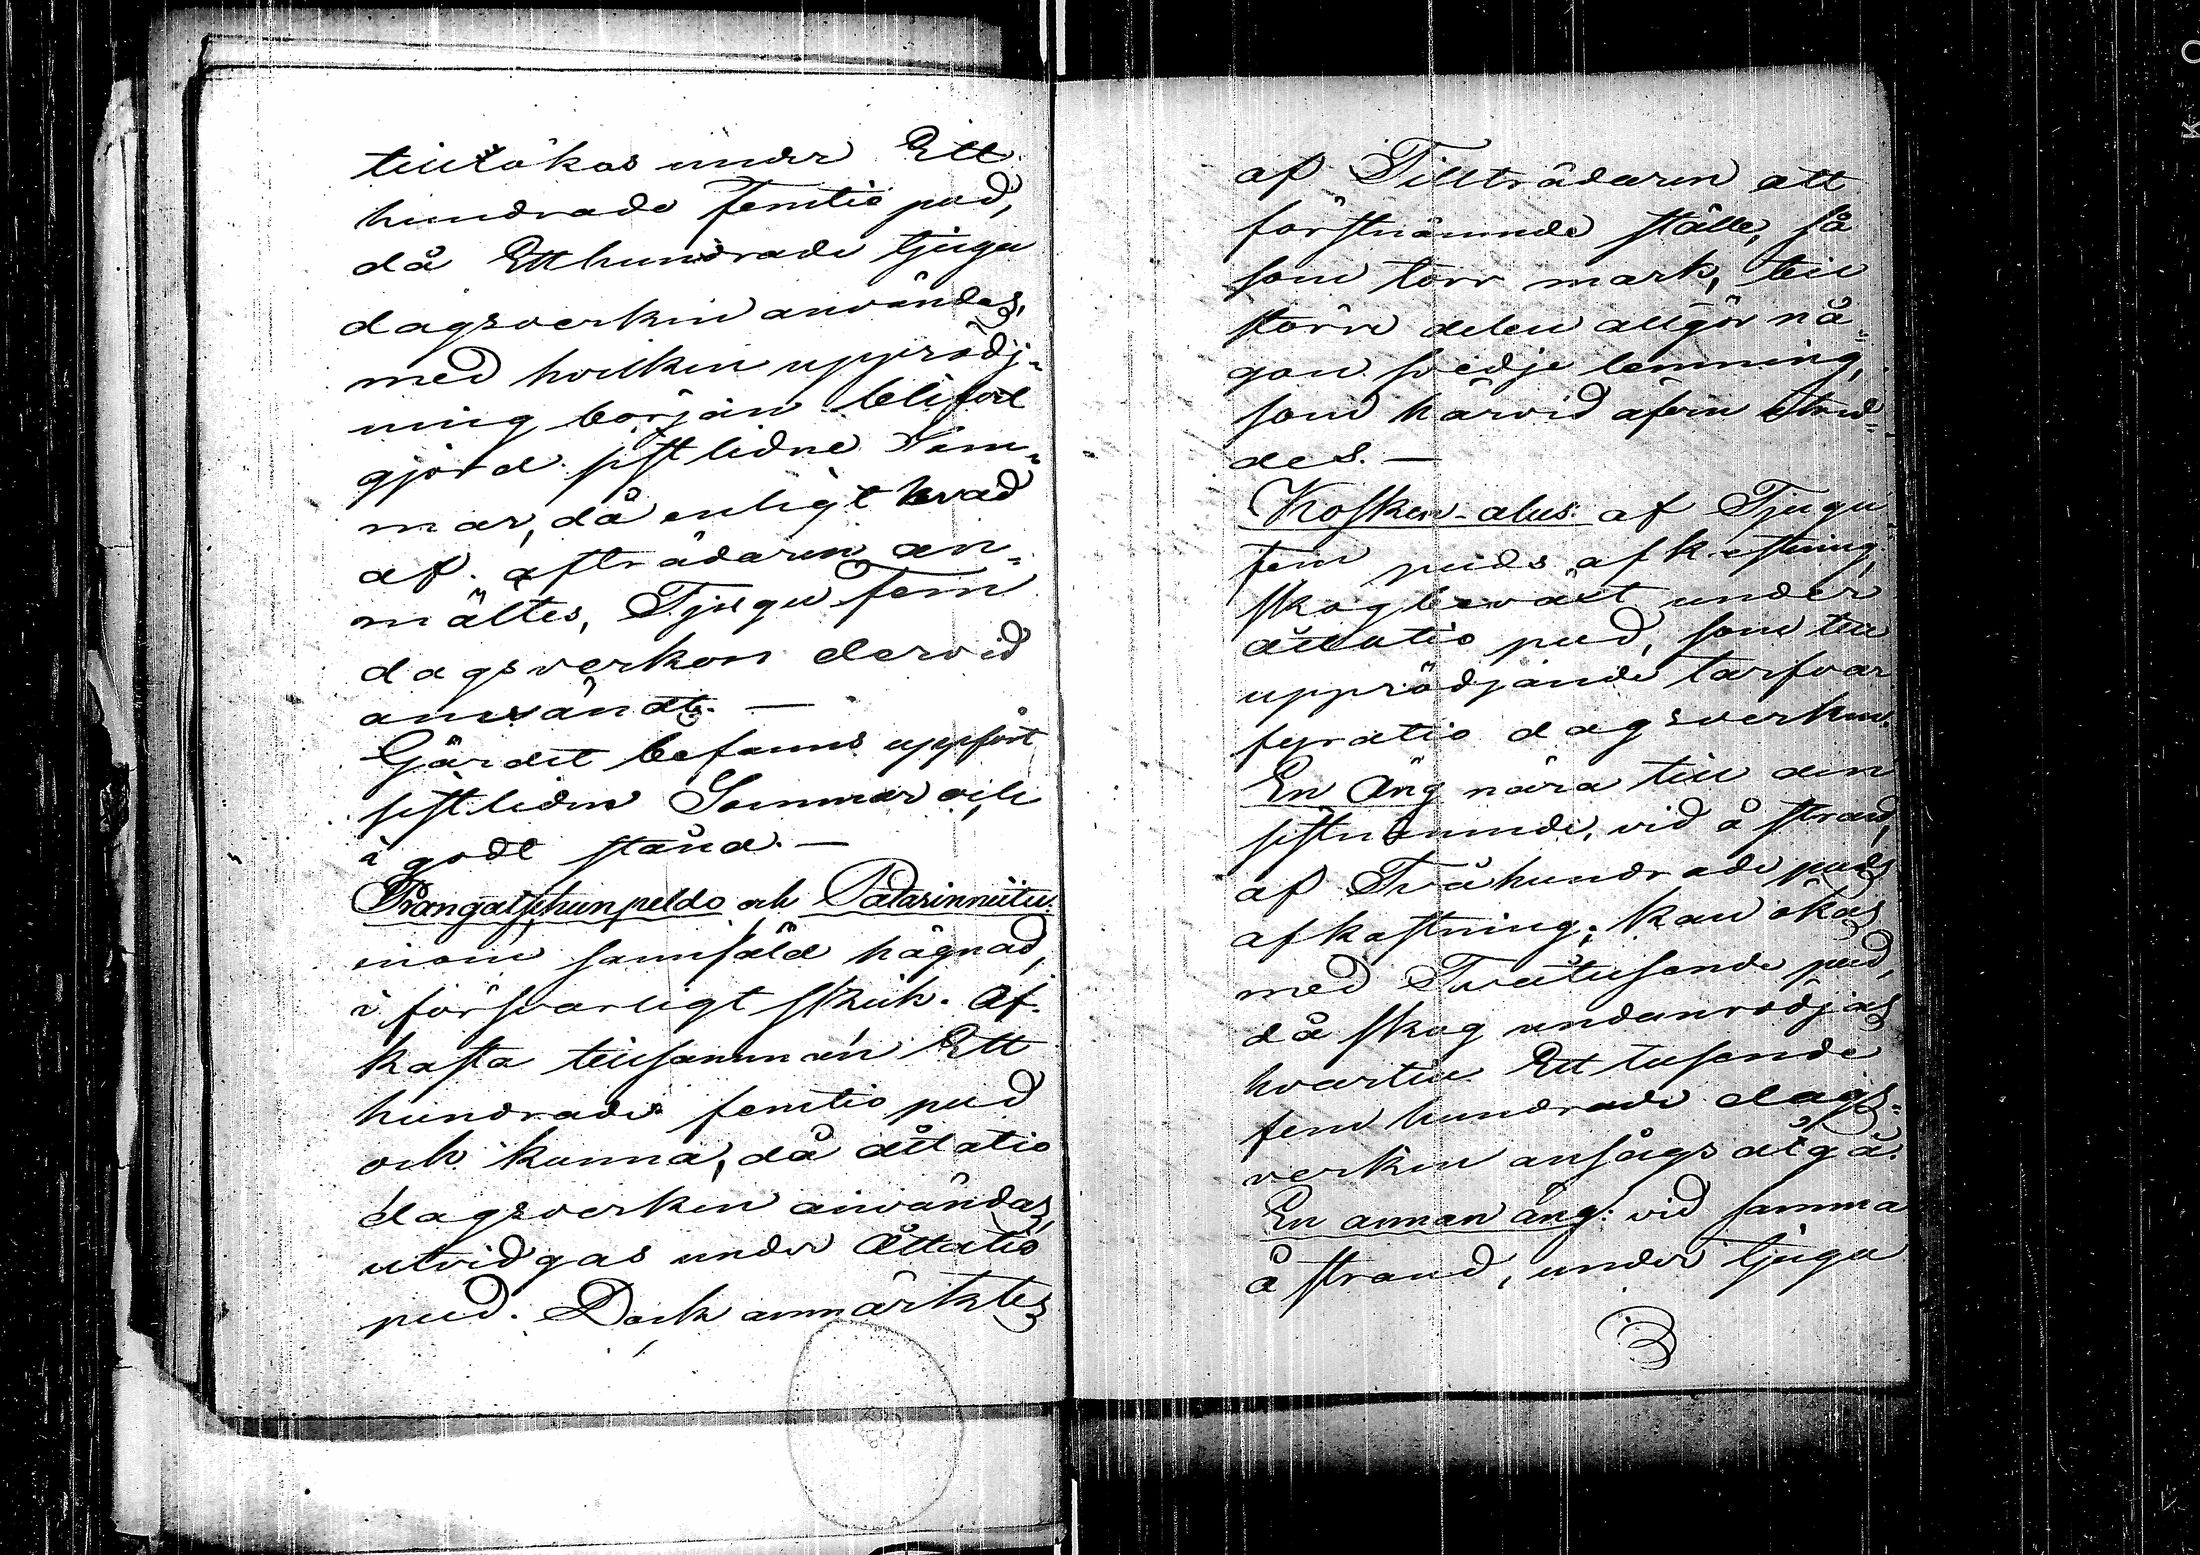 tillökas under Ett
hundrade femtio pud,
då Etthundrade tjugu
dagsverken användas,
med hvilken upprödj-
ning början blifvit
gjord sistlidne Som-
mar, då enligt hvad
af afträdaren an-
mältes, Tjugufem
dagsverken dervid
användts. —
Gärdet befanns uppfört
sistliden Sommar och
i godt stånd. —
Prangatschunpeldo och Patasinniitu
inom samfäld hägnad,
i försvarligt skick. Af-
kasta tillsamman Ett
hundrade femtio pud
och kunna, då åttatio
dagsverken användas,
utvidgas under Åttatio
pud. Dock anmärktes
af Tillträdaren att
förstnämnde ställe, så
som torr mark, till
större delen utgör nå-
gon svedje lemning,
som härvid äfven utred-
des. —
Kosken-alus af Tjugu
fem puds afkastning,
skogbeväxt under
åttatio pud, som till
upprödjande tarfvar
fyratio dagsverken.
En Äng nära till den
sistnämnde, vid å strand,
af Tvåhundrade puds
afkastning; kan ökas
med Tvåtusende pud,
då skog undanrödjas
hvartill Ett tusende
fem hundrade dags-
verken ansågs åtgå.
En annan äng: vid samma
å strand, under tjugu